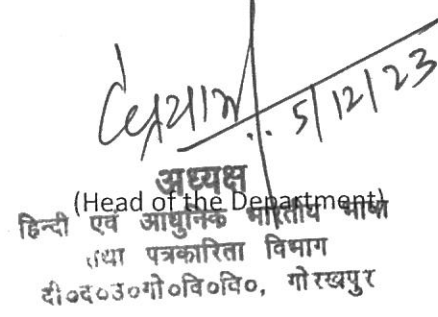 5/12/23
अध्यक्ष
(Head of the Department)
हिन्दी एवं आधुनिक भारतीय भाषा
तथा पत्रकारिता विभाग
दी०द०उ०गो०वि०वि०, गोरखपुर